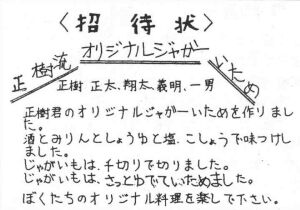 〈招待状〉
正樹流 オリジナルジャガーいため
正樹 正太、翔太、義明、一男
正樹君のオリジナルジャガーいためを作りまし
た。
酒とみりんとしょうゆと塩、こしょうで味つけし
ました。
じゃがいもは、千切りで切りました。
じゃがいもは、さっとゆでていためました。
ぼくたちのオリジナル料理を楽しで下さい。